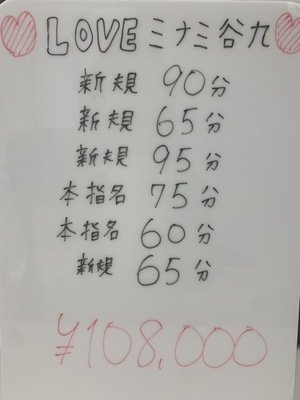 LOVEミナミ谷九
新規 90分
新規 65分
新規 95分
本指名 75分
本指名 60分
新規 65分
¥108,000